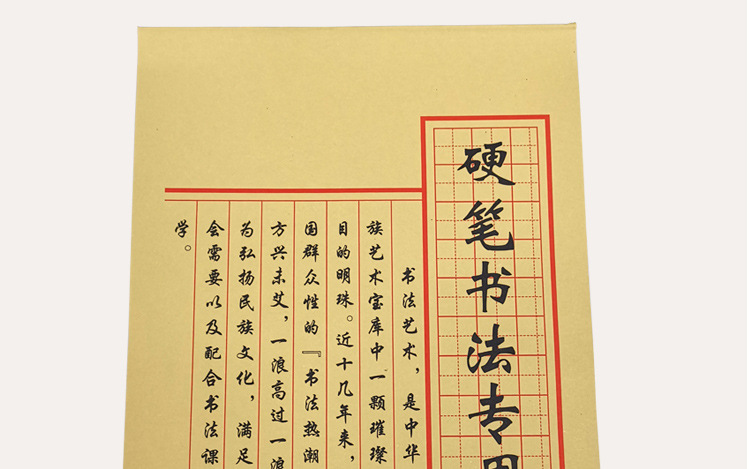 硬笔书法专用
书法艺术，是中华
族艺术宝库中一颗璀璨
目的明珠。近十几年来，
国群众性的『书法热潮
方兴未艾，一浪高过一浪
为弘扬民族文化，满足
会需要以及配合书法课
学。